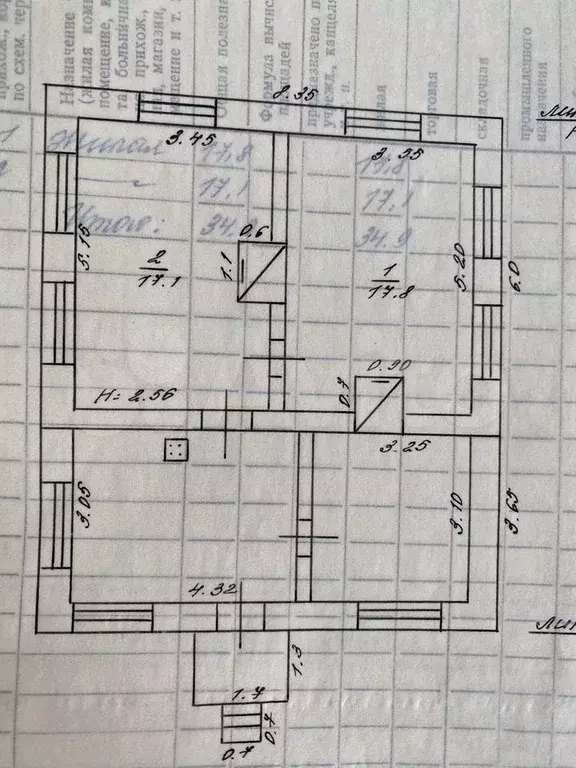 Назначение
(жилая
помещение,
прихож.,
магазин,
Общая
Формула
площадей
учрежд.
жилая
торговая
складочная
промышленного
назначения
8.35
3.45
3.35
Жилая 17,8 17,8
17.1 17.1
Итого: 34.9 34.9
5.15
2
17.1
0.6
1.1
1
17.8
5.20
6.0
0.90
0.7
H=2.56
3.25
3.05
3.10
3.65
4.32
1.3
1.7
0.7
0.7